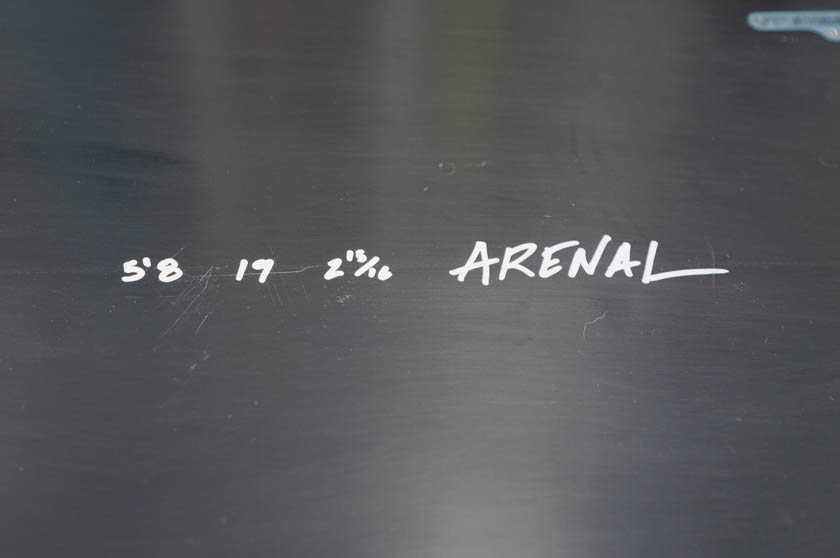 5'8 19 2 13/16 ARENAL